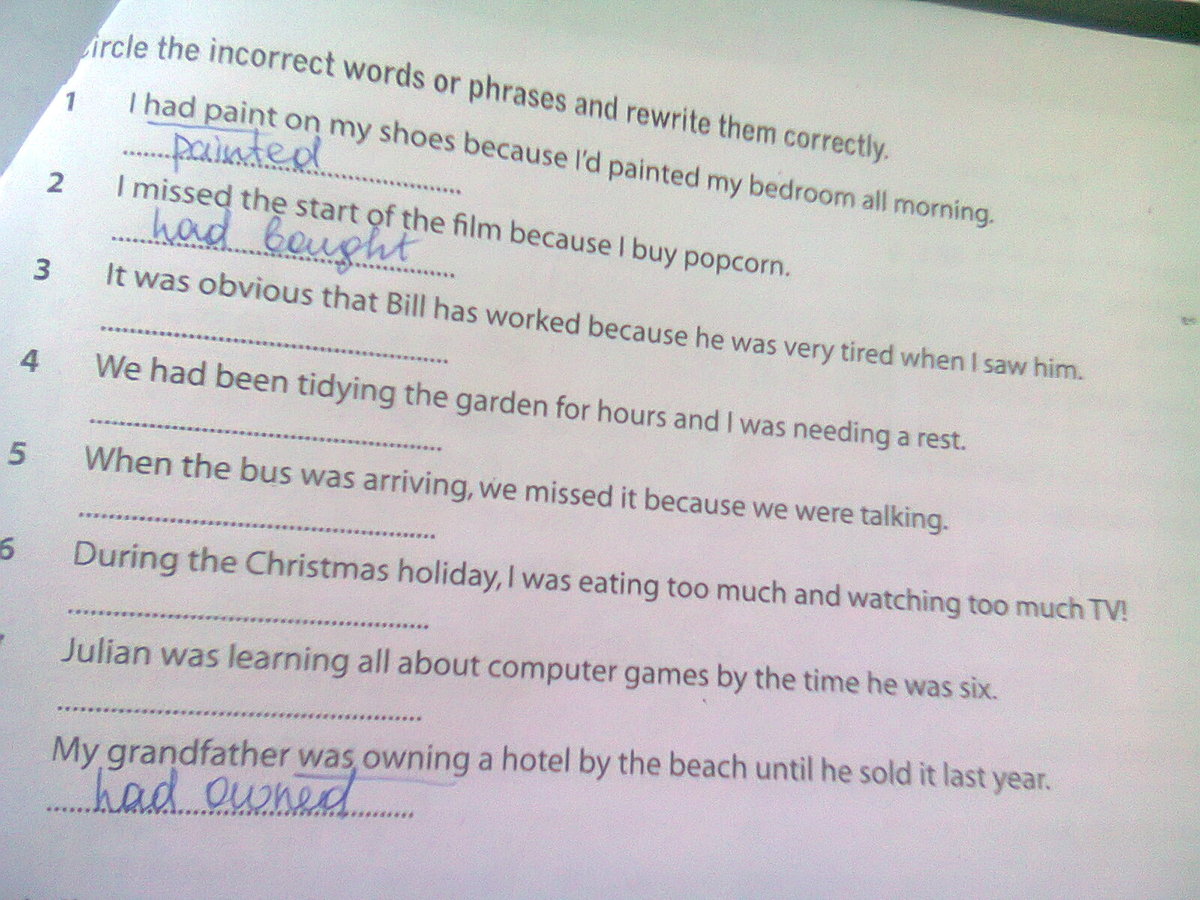 ircle the incorrect words or phrases and rewrite them correctly.
1 I had paint on my shoes because I'd painted my bedroom all morning.
painted
2 I missed the start of the film because I buy popcorn.
had bought
3 It was obvious that Bill has worked because he was very tired when I saw him.
4 We had been tidying the garden for hours and I was needing a rest.
5 When the bus was arriving, we missed it because we were talking.
6 During the Christmas holiday, I was eating too much and watching too much TV!
Julian was learning all about computer games by the time he was six.
My grandfather was owning a hotel by the beach until he sold it last year.
had owned